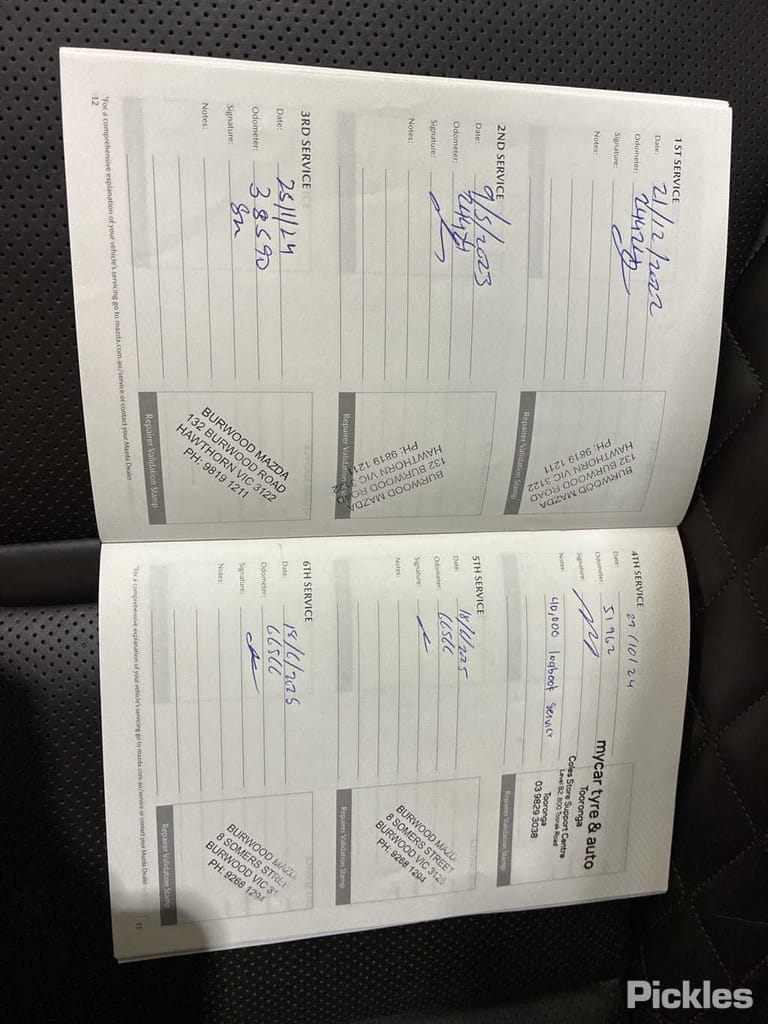 1ST SERVICE
Date: 21/12/2022
Odometer:
Signature:
Notes:
BURWOOD MAZDA
132 BURWOOD ROAD
HAWTHORN VIC 3122
PH: 9819 1211
Repairer Validation Stamp
2ND SERVICE
Date: 9/5/2023
Odometer:
Signature:
Notes:
BURWOOD MAZDA
132 BURWOOD ROAD
HAWTHORN VIC 3122
PH: 9819 1211
Repairer Validation Stamp
3RD SERVICE
Date: 25/1/24
Odometer: 38590
Signature:
Notes:
BURWOOD MAZDA
132 BURWOOD ROAD
HAWTHORN VIC 3122
PH: 9819 1211
Repairer Validation Stamp
*For a comprehensive explanation of your vehicle's servicing go to mazda.com.au/service or contact your Mazda Dealer
12
4TH SERVICE
Date: 29/10/24
Odometer: 51962
Signature:
Notes: 40,000 logbook service
mycar tyre & auto
Tooronga
Coles Store Support Centre
Level B2, 800 Toorak Road
Tooronga
03 9829 3038
Repairer Validation Stamp
5TH SERVICE
Date: 18/6/2025
Odometer: 66566
Signature:
Notes:
BURWOOD MAZDA
8 SOMERS STREET
BURWOOD VIC 3125
PH: 9268 1294
Repairer Validation Stamp
6TH SERVICE
Date: 18/6/2025
Odometer: 66566
Signature:
Notes:
BURWOOD MAZDA
8 SOMERS STREE
BURWOOD VIC 31
PH: 9268 1294
Repairer Validation Stamp
*For a comprehensive explanation of your vehicle's servicing go to mazda.com.au/service or contact your Mazda Dealer
13
Pickles